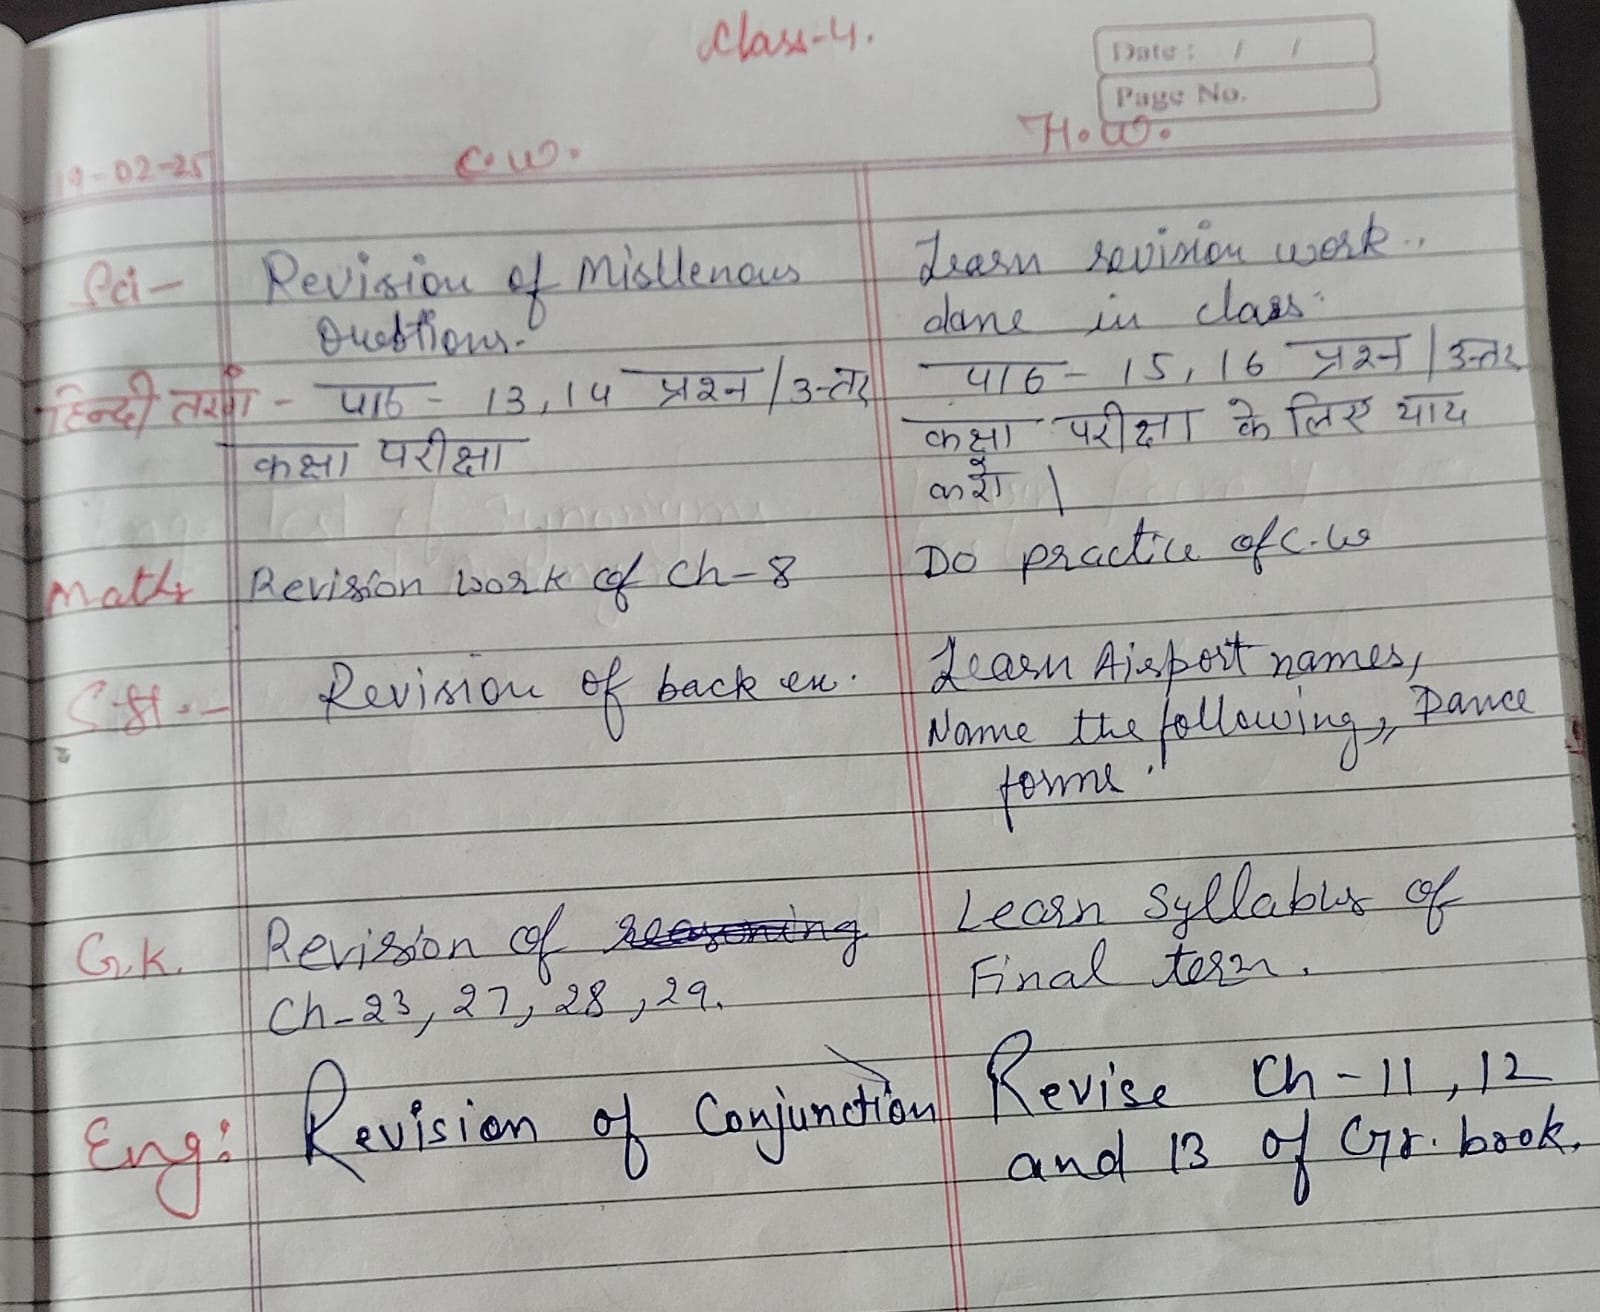 Class-4.
Date : / /
Page No.
19-02-25 C.W. H.W.
Sci- Revision of Mislleneous Learn revision work..
Questions. done in class.
हिन्दी तरंग - पाठ - 13, 14 प्रश्न / उत्तर पाठ - 15, 16 प्रश्न / उत्तर
कक्षा परीक्षा कक्षा परीक्षा के लिए याद
करो ।
Maths Revision work of Ch-8 Do practice of C.W
S.St.- Revision of back ex. Learn Airport names,
Name the following, Dance
forms.
G.K. Revision of reasoning Learn Syllabus of
Ch-23, 27, 28, 29. Final term.
Eng: Revision of Conjunction Revise Ch-11, 12
and 13 of Gr. book.